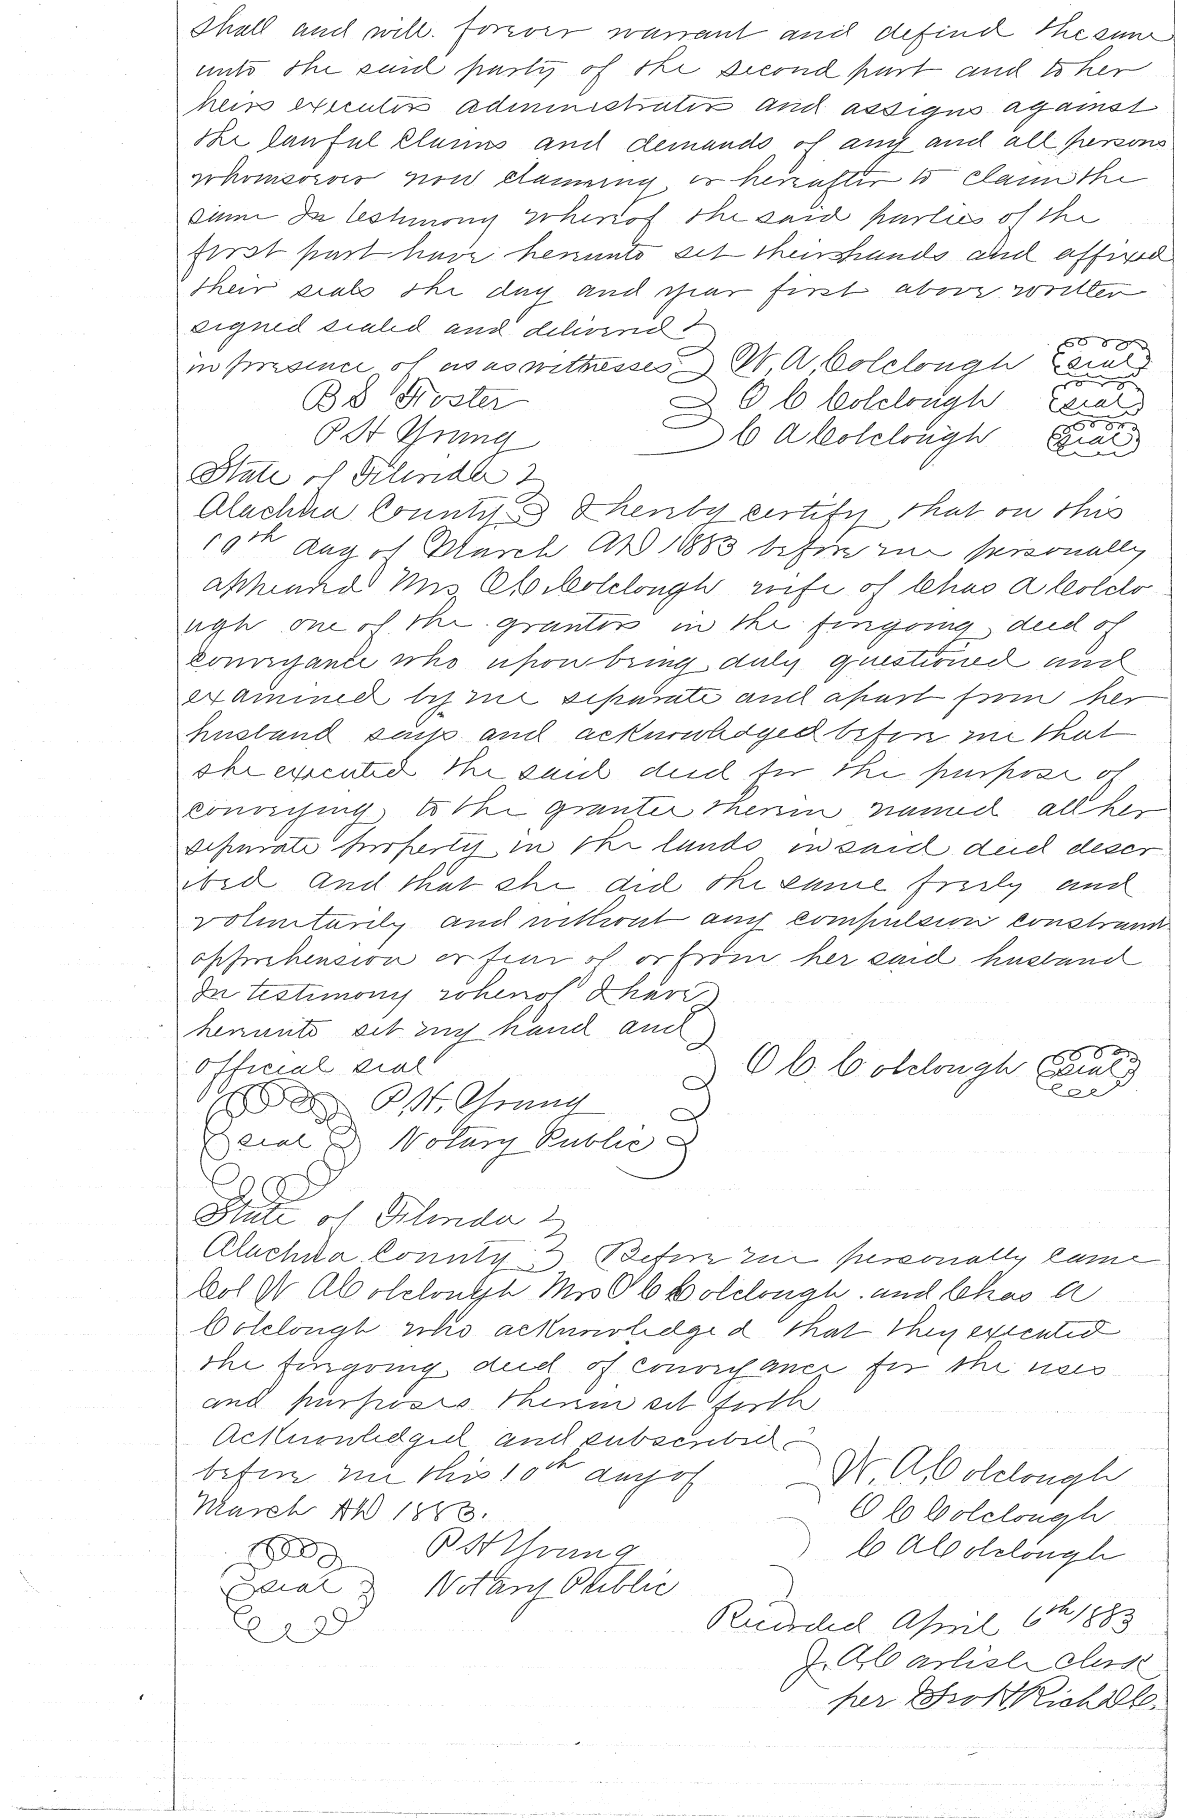 shall and will forever warrant and defend the same
unto the said party of the second part and to her
heirs executors administrators and assigns against
the lawful claims and demands of any and all persons
whomsoever now claiming or hereafter to claim the
same In testimony whereof the said parties of the
first part have hereunto set their hands and affixed
their seals the day and year first above written
signed sealed and delivered
in presence of us as witnesses W. A. Colclough seal
B S Foster O C Colclough seal
P H Young C A Colclough seal
State of Florida
Alachua County I hereby certify that on this
19th day of March AD 1883 before me personally
appeared Mrs O C Colclough wife of Chas A Colclo
ugh one of the grantors in the foregoing deed of
conveyance who upon being duly questioned and
examined by me separate and apart from her
husband says and acknowledged before me that
she executed the said deed for the purpose of
conveying to the grantee therein named all her
separate property in the lands in said deed descr
ibed and that she did the same freely and
voluntarily and without any compulsion constraint
apprehension or fear of or from her said husband
In testimony whereof I have
hereunto set my hand and
official seal O C Colclough seal
P. H. Young
seal Notary Public
State of Florida
Alachua County Before me personally came
Col W A Colclough Mrs O C Colclough and Chas A
Colclough who acknowledged that they executed
the foregoing deed of conveyance for the uses
and purposes therein set forth
Acknowledged and subscribed
before me this 10th day of W. A. Colclough
March AD 1883. O C Colclough
P H Young C A Colclough
seal Notary Public
Recorded April 6th 1883
J. A. Carlisle Clerk
per